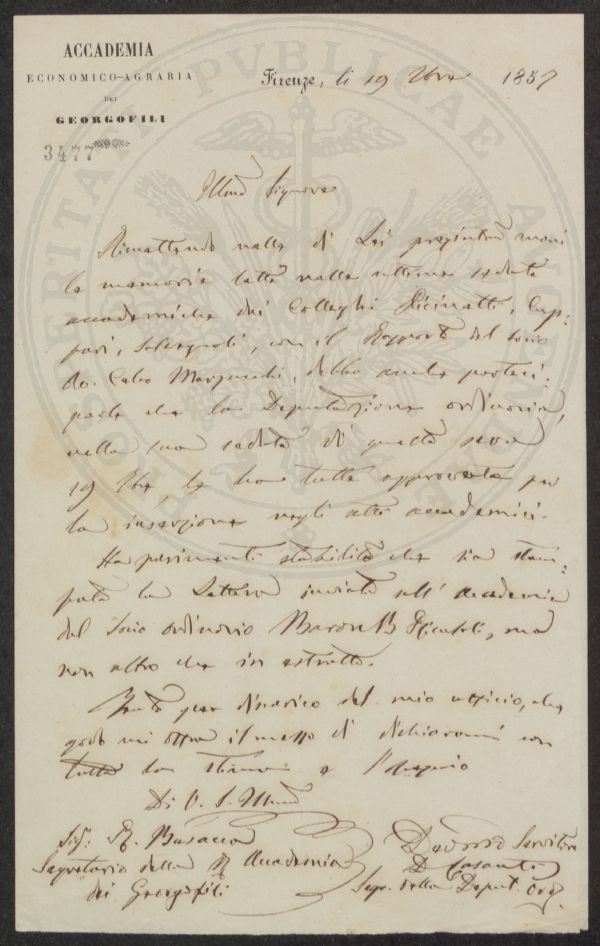 ACCADEMIA
ECONOMICO-AGRARIA
DEI
GEORGOFILI
3477
Firenze, li 19 9bre 1857
PROSPERITATI PUBLICAE AUGENDAE
Illmo Signore
Rimettendo nelle di Lei pregiatme mani
le memorie lette nelle ultime sedute
accademiche dai Colleghi Cup-
pari, Salvagnoli, con il Rapporto del socio
Marzucchi, debbo anche parteci-
parle che la Deputazione ordinaria,
nella sua seduta di questa sera
19 9bre, le ha tutte approvate per
la inserzione negli atti accademici.
Ha parimenti stabilito che sia stam-
pata la Lettera inviata all' Accademia
dal Socio ordinario Baron B Ricasoli, ma
non altro che in estratto.
Tanto per discarico del mio ufficio, che
godo mi offra il mezzo di dichiararmi con
tutta la stima e l'ossequio
Di V. S. Illma
Sigr. R. Busacca
Segretario della R Accademia
dei Georgofili
Devmo Servitore
Segr. della Deput. Ord.